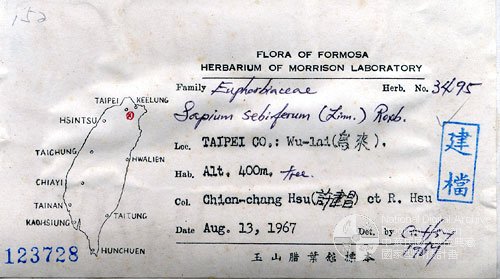 152
FLORA OF FORMOSA
HERBARIUM OF MORRISON LABORATORY
Family Euphorbiaceae Herb. No. 34195
Sapium sebiferum (Linn.) Roxb.
Loc. TAIPEI CO.: Wu-lai(烏來).
Hab. Alt. 400m, tree.
Col. Chien-chang Hsu(許建昌) et R. Hsu
Date Aug. 13, 1967 Det. by C. Hsu
1967
玉山腊葉舘標本
建檔
TAIPEI
KEELUNG
HSINTSU
TAICHUNG
HWALIEN
CHIAYI
TAINAN
KAOHSIUNG
TAITUNG
HUNCHUEN
123728
National Digital Archive